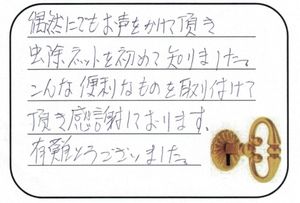 偶然にでもお声をかけて頂き
虫除ネットを初めて知りました。
こんな便利なものを取り付けて
頂き感謝しております。
有難とうございました。